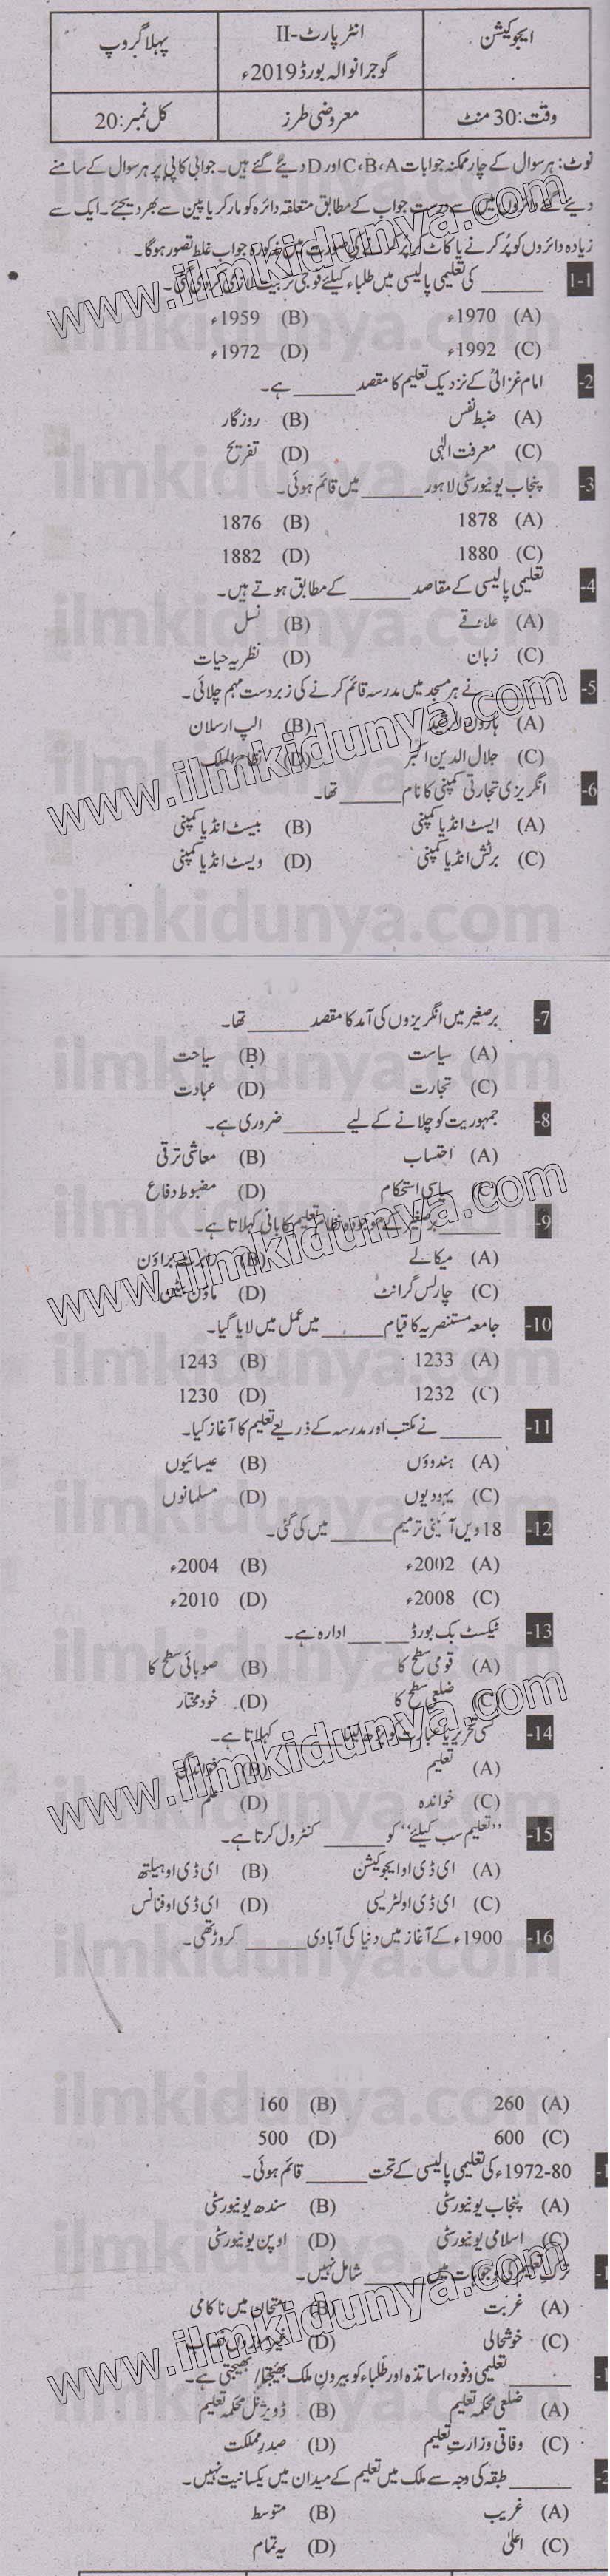 ایجوکیشن
انٹر پارٹ-II
گوجرانوالہ بورڈ 2019ء
پہلا گروپ
وقت: 30 منٹ
معروضی طرز
کل نمبر: 20
نوٹ: ہر سوال کے چار ممکنہ جوابات C،B،A اور D دیئے گئے ہیں۔ جوابی کاپی پر ہر سوال کے سامنے
دیئے گئے دائروں میں سے درست جواب کے مطابق متعلقہ دائرہ کو مارکر یا پین سے بھر دیجئے۔ ایک سے
زیادہ دائروں کو پُر کرنے یا کاٹ کر پُر کرنے کی صورت میں مذکورہ جواب غلط تصور ہوگا۔
1-1 ______ کی تعلیمی پالیسی میں طلباء کیلئے فوجی تربیت لازمی قرار دی گئی۔
(A) 1970ء (B) 1959ء
(C) 1992ء (D) 1972ء
2- امام غزالیؒ کے نزدیک تعلیم کا مقصد ______ ہے۔
(A) ضبط نفس (B) روزگار
(C) معرفت الٰہی (D) تفریح
3- پنجاب یونیورسٹی لاہور ______ میں قائم ہوئی۔
(A) 1878 (B) 1876
(C) 1880 (D) 1882
4- تعلیمی پالیسی کے مقاصد ______ کے مطابق ہوتے ہیں۔
(A) علاقے (B) نسل
(C) زبان (D) نظریہ حیات
5- ______ نے ہر مسجد میں مدرسہ قائم کرنے کی زبردست مہم چلائی۔
(A) ہارون الرشید (B) الپ ارسلان
(C) جلال الدین اکبر (D) نظام الملک
6- انگریزی تجارتی کمپنی کا نام ______ تھا۔
(A) ایسٹ انڈیا کمپنی (B) بیسٹ انڈیا کمپنی
(C) برٹش انڈیا کمپنی (D) ویسٹ انڈیا کمپنی
7- برصغیر میں انگریزوں کی آمد کا مقصد ______ تھا۔
(A) سیاست (B) سیاحت
(C) تجارت (D) عبادت
8- جمہوریت کو چلانے کے لیے ______ ضروری ہے۔
(A) احتساب (B) معاشی ترقی
(C) سیاسی استحکام (D) مضبوط دفاع
9- ______ برصغیر کے موجودہ نظام تعلیم کا بانی کہلاتا ہے۔
(A) میکالے (B) رابرٹ براؤن
(C) چارلس گرانٹ (D) ماؤنٹ بیٹن
10- جامعہ مستنصریہ کا قیام ______ میں عمل میں لایا گیا۔
(A) 1233 (B) 1243
(C) 1232 (D) 1230
11- ______ نے مکتب اور مدرسہ کے ذریعے تعلیم کا آغاز کیا۔
(A) ہندوؤں (B) عیسائیوں
(C) یہودیوں (D) مسلمانوں
12- 18 ویں آئینی ترمیم ______ میں کی گئی۔
(A) 2002ء (B) 2004ء
(C) 2008ء (D) 2010ء
13- ٹیکسٹ بک بورڈ ______ ادارہ ہے۔
(A) قومی سطح کا (B) صوبائی سطح کا
(C) ضلعی سطح کا (D) خود مختار
14- کسی تحریر یا عبارت کو پڑھ لینا ______ کہلاتا ہے۔
(A) تعلیم (B) خواندگی
(C) خواندہ (D) علم
15- ’’تعلیم سب کیلئے‘‘ کو ______ کنٹرول کرتا ہے۔
(A) ای ڈی او ایجوکیشن (B) ای ڈی او ہیلتھ
(C) ای ڈی او لٹریسی (D) ای ڈی او فنانس
16- 1900ء کے آغاز میں دنیا کی آبادی ______ کروڑ تھی۔
(A) 260 (B) 160
(C) 600 (D) 500
1972-80ء کی تعلیمی پالیسی کے تحت ______ قائم ہوئی۔
(A) پنجاب یونیورسٹی (B) سندھ یونیورسٹی
(C) اسلامی یونیورسٹی (D) اوپن یونیورسٹی
ترک تعلیم کی وجوہات میں ______ شامل نہیں۔
(A) غربت (B) امتحان میں ناکامی
(C) خوشحالی (D) غیر موزوں نصاب
______ تعلیمی وفود، اساتذہ اور طلباء کو بیرون ملک بھیجتا/بھیجتی ہے۔
(A) ضلعی محکمہ تعلیم (B) ڈویژنل محکمہ تعلیم
(C) وفاقی وزارت تعلیم (D) صدر مملکت
______ طبقہ کی وجہ سے ملک میں تعلیم کے میدان میں یکسانیت نہیں۔
(A) غریب (B) متوسط
(C) اعلیٰ (D) یہ تمام
www.ilmkidunya.com
ilmkidunya.com